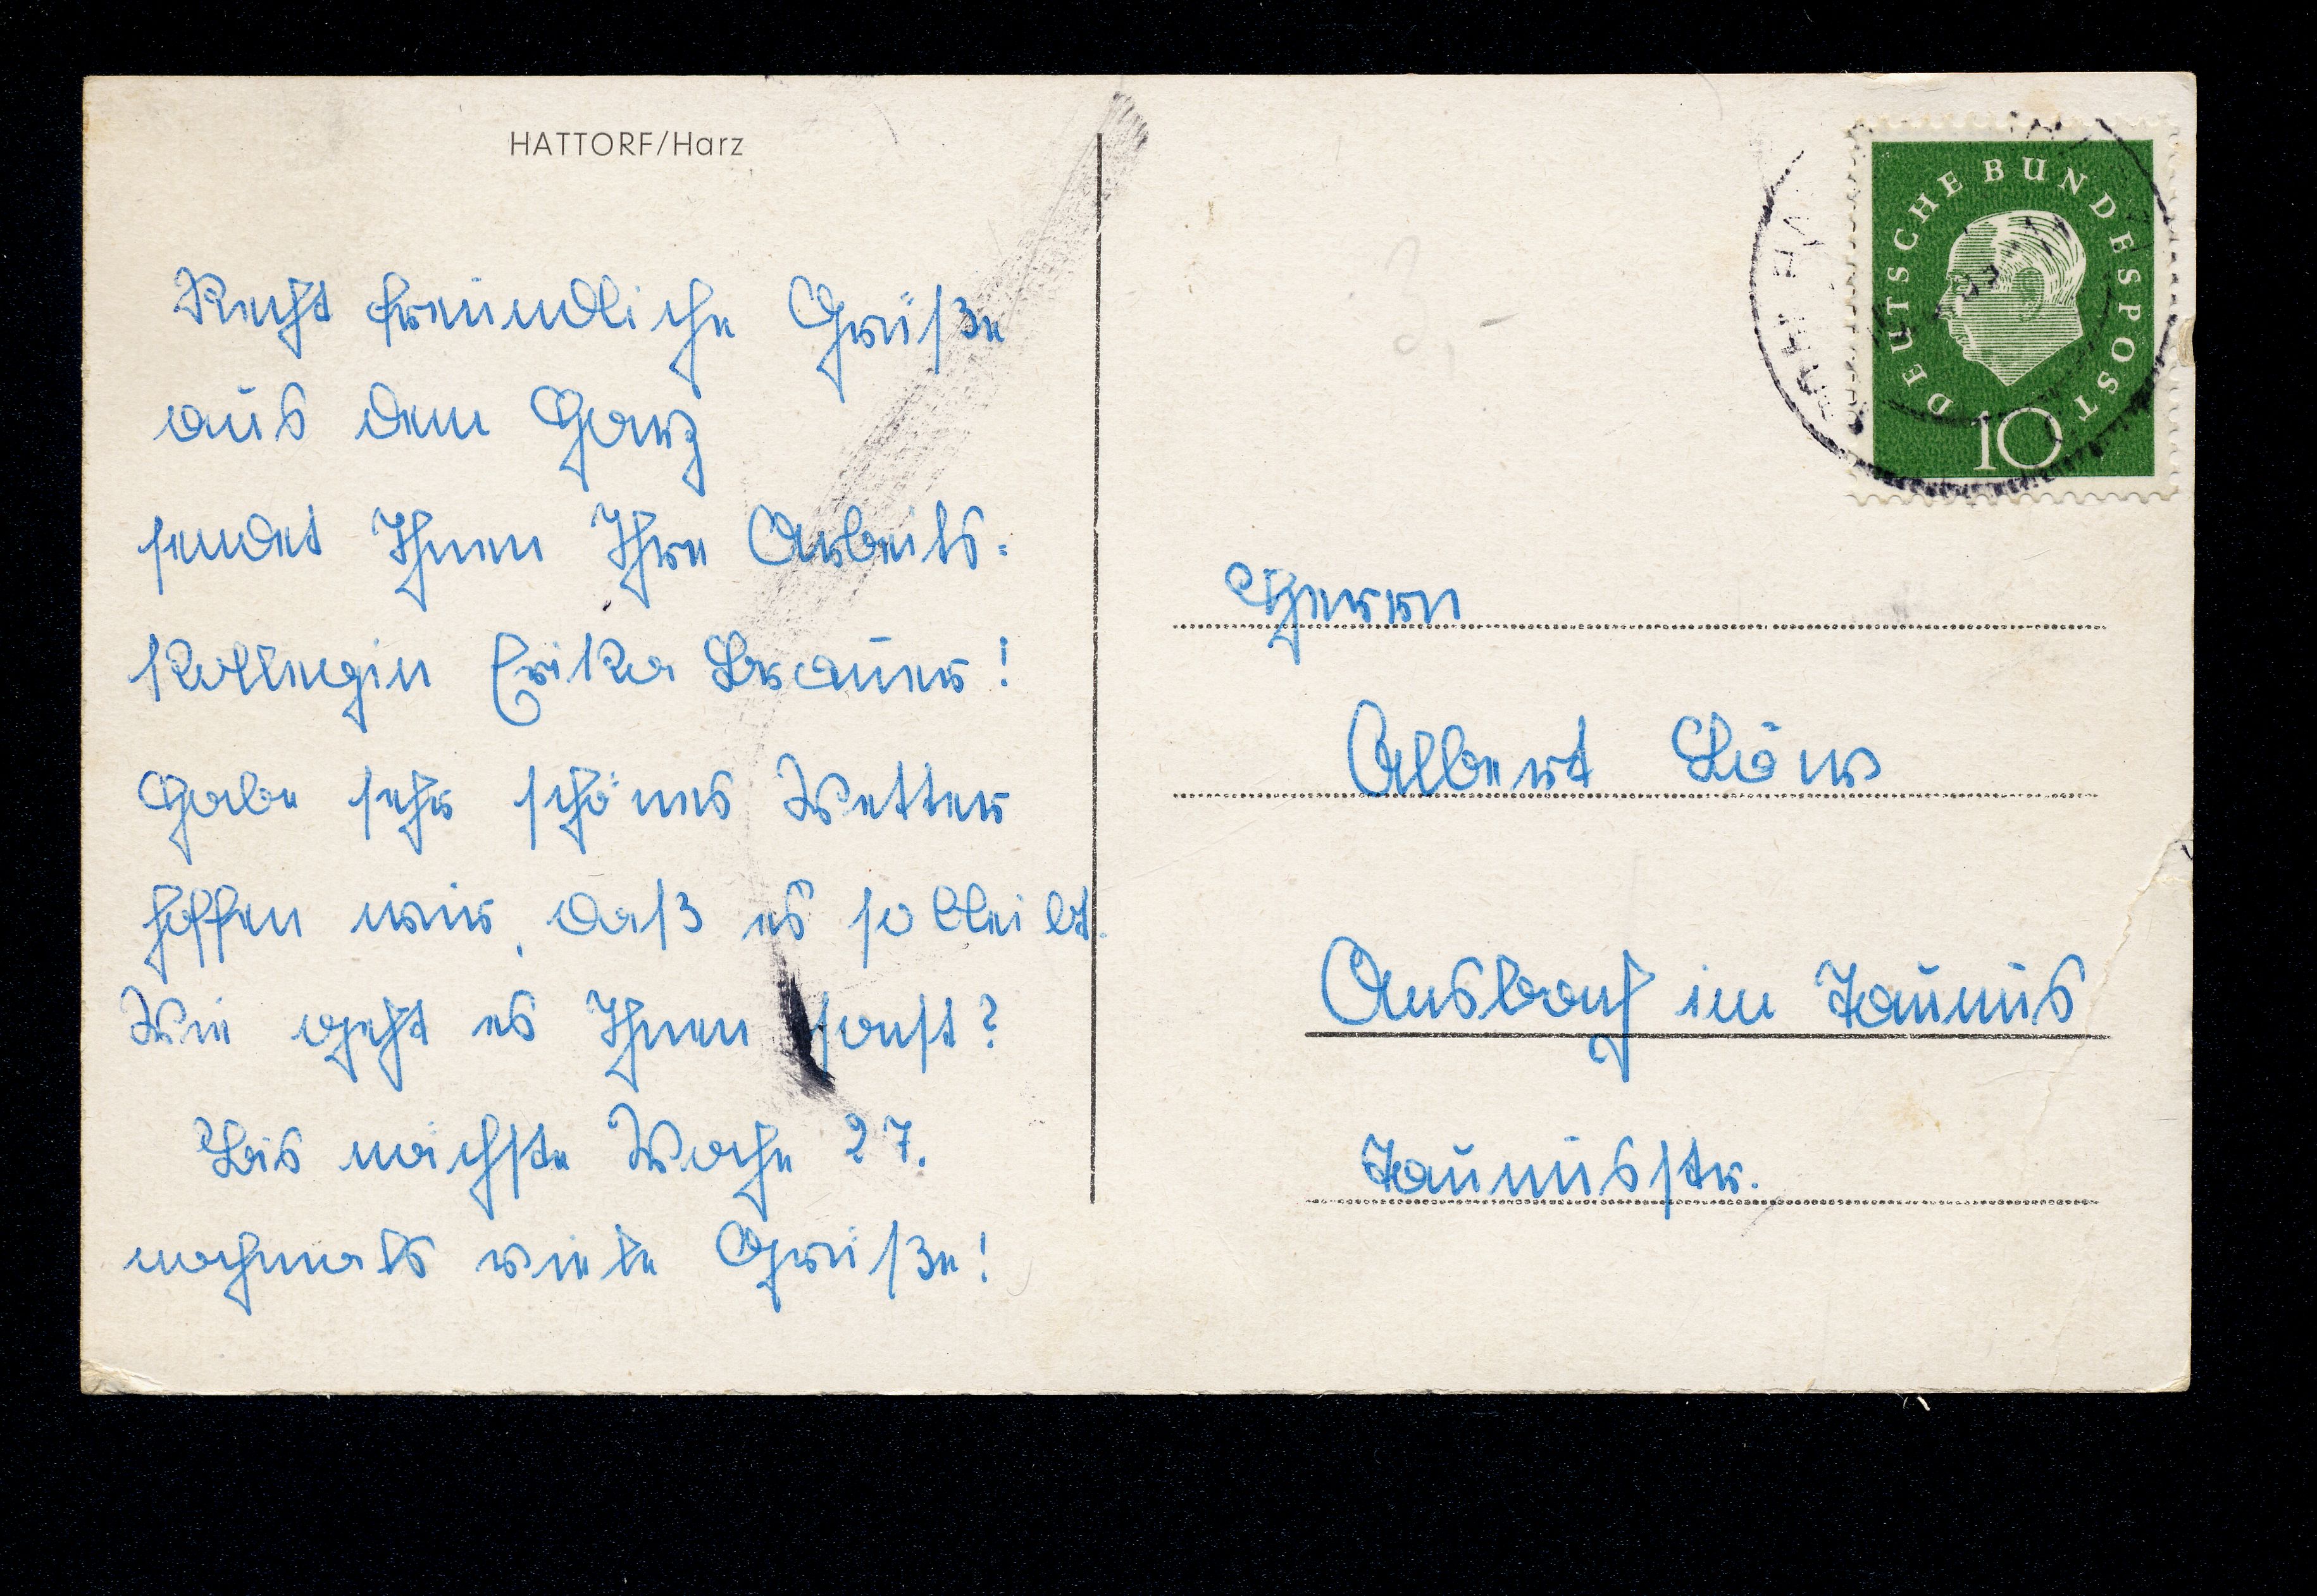 HATTORF/Harz
Recht freundliche Grüße
aus dem Harz
sendet Ihnen Ihre Arbeits-
kollegin Erika Brauer!
Habe sehr schönes Wetter
hoffen wir, daß es so bleibt.
Wie geht es Ihnen sonst?
Bis nächste Woche 27.
nochmals viele Grüße!
DEUTSCHE BUNDESPOST
10
Herrn
Albert
Ansbach im Taunus
Taunusstr.